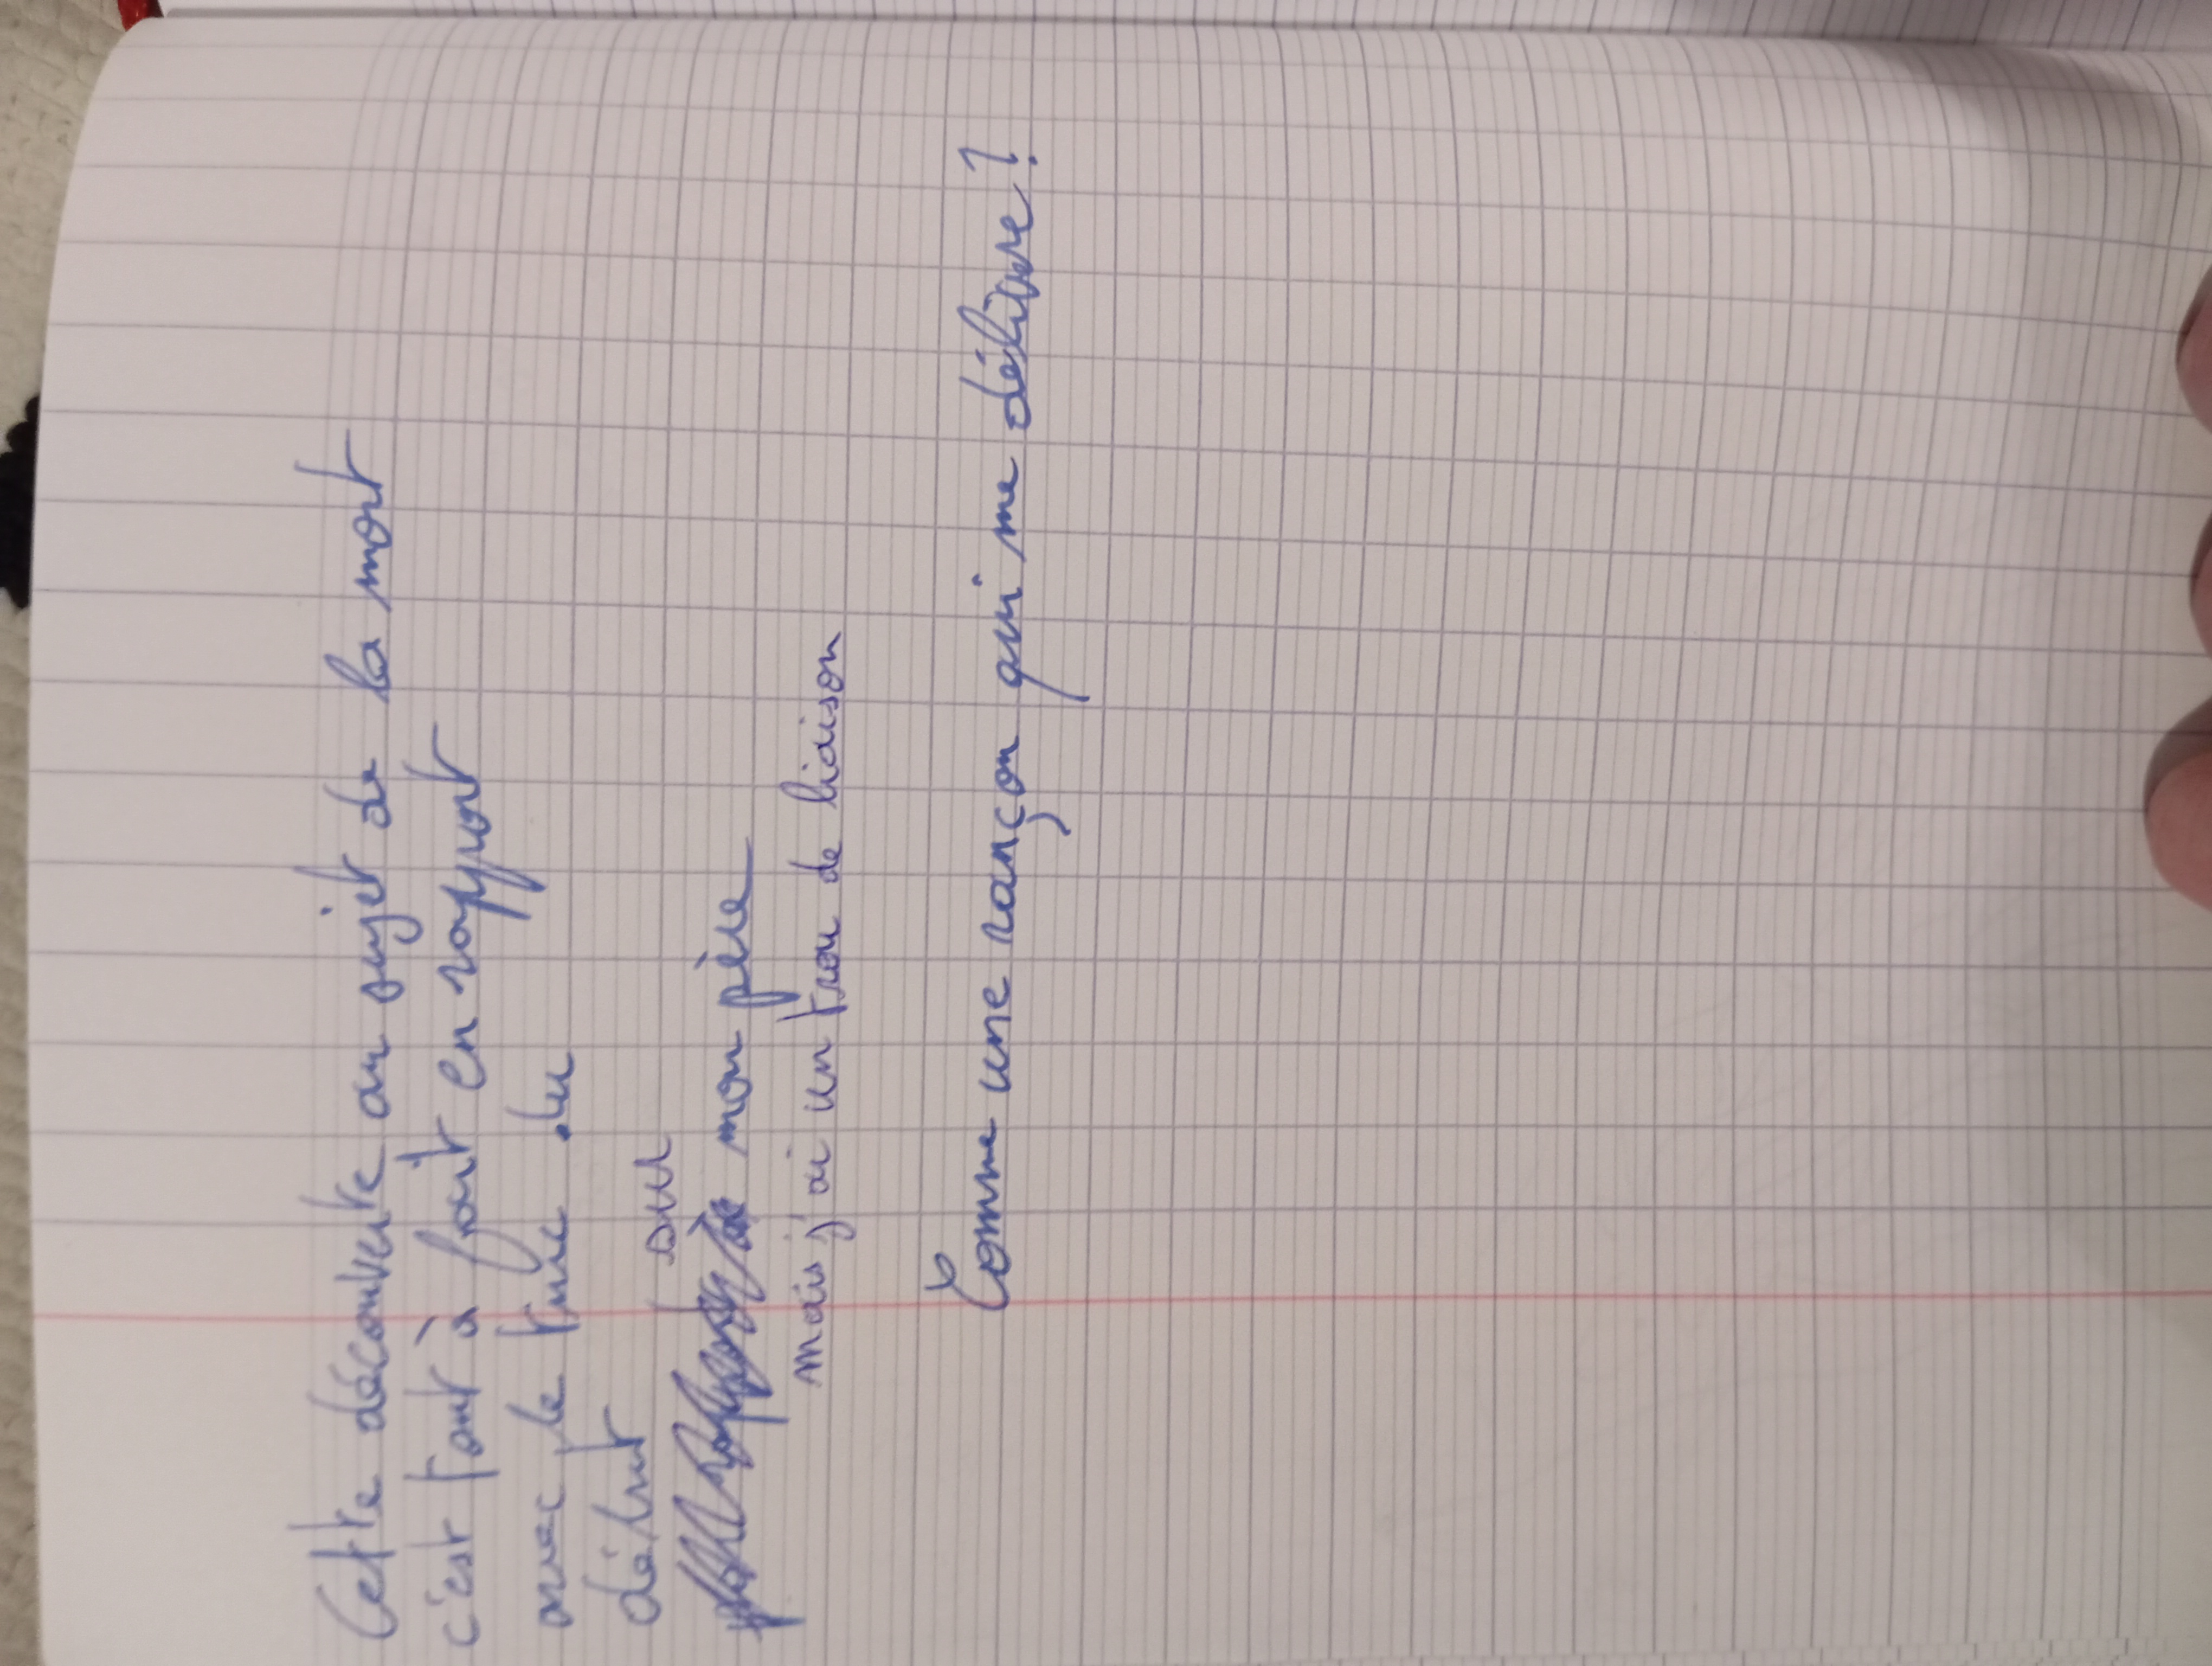 Cette découverte au sujet de la mort
c'est tout à fait en rapport
avec le truc du
début
sur
mon père
mais j'ai un trou de liaison
Comme une rançon qui me délivre ?